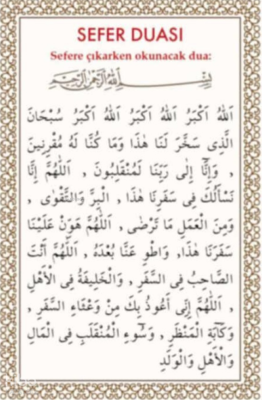 SEFER DUASI
Sefere çıkarken okunacak dua:
بِسْمِ اللّٰهِ الرَّحْمٰنِ الرَّحِيمِ
اَللهُ اَكْبَرُ اَللهُ اَكْبَرُ اَللهُ اَكْبَرُ سُبْحَانَ
الَّذِى سَخَّرَ لَنَا هٰذَا وَمَا كُنَّا لَهُ مُقْرِنِينَ
، وَإِنَّا إِلَى رَبِّنَا لَمُنْقَلِبُونَ ، اَللَّهُمَّ إِنَّا
نَسْأَلُكَ فِى سَفَرِنَا هٰذَا ، الْبِرَّ وَالتَّقْوَى ،
وَمِنَ الْعَمَلِ مَا تَرْضَى ، اَللَّهُمَّ هَوِّنْ عَلَيْنَا
سَفَرَنَا هٰذَا, وَاطْوِ عَنَّا بُعْدَهُ ، اَللَّهُمَّ أَنْتَ
الصَّاحِبُ فِى السَّفَرِ ، وَالْخَلِيفَةُ فِى الْأَهْلِ
، اَللَّهُمَّ إِنِّى أَعُوذُ بِكَ مِنْ وَعْثَاءِ السَّفَرِ ,
وَكَآبَةِ الْمَنْظَرِ , وَسُوءِ الْمُنْقَلَبِ فِى الْمَالِ
وَالْأَهْلِ وَالْوَلَدِ